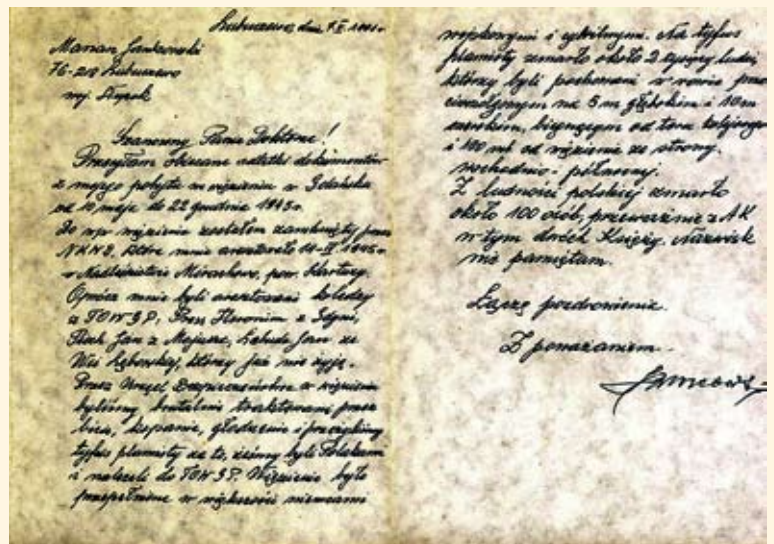 Lubuczewo, dnia 7.II. 1991r
Marian Jankowski
76-218 Lubuczewo
woj. Słupsk
Szanowny Panie Doktorze!
Przesyłam obiecane odbitki dokumentów
z mojego pobytu w więzieniu w Gdańsku
od 10 maja do 22 grudnia 1945r.
Do w/w więzienia zostałem zamknięty przez
NKWD, które mnie aresztowało
w Nadleśnictwie Mirachowo, pow. Kartuzy.
Oprócz mnie byli aresztowani koledzy
z TOW G.P, Hieronim z Gdyni,
Jan z Jan ze
Wsi którzy już nie żyją.
Przez Urząd Bezpieczeństwa w więzieniu
byliśmy brutalnie traktowani przez
bicie, kopanie, głodzenie i przeżyliśmy
tyfus plamisty za to, żeśmy byli Polakami
i należeli do TOW GP. Więzienie było
przepełnione w większości niemcami
wojskowymi i cywilnymi. Na tyfus
plamisty zmarło około 2 tysięcy ludzi,
którzy byli pochowani w rowie
na 5 m głębokim i 10 m
szerokim, biegnącym od toru kolejowego
i 100 mb od więzienia ze strony
wschodnio-północnej.
Z ludności polskiej zmarło
około 100 osób, przeważnie z AK
w tym dwóch Księży. Nazwisk
nie pamiętam.
Łączę pozdrowienia.
Z poważaniem.